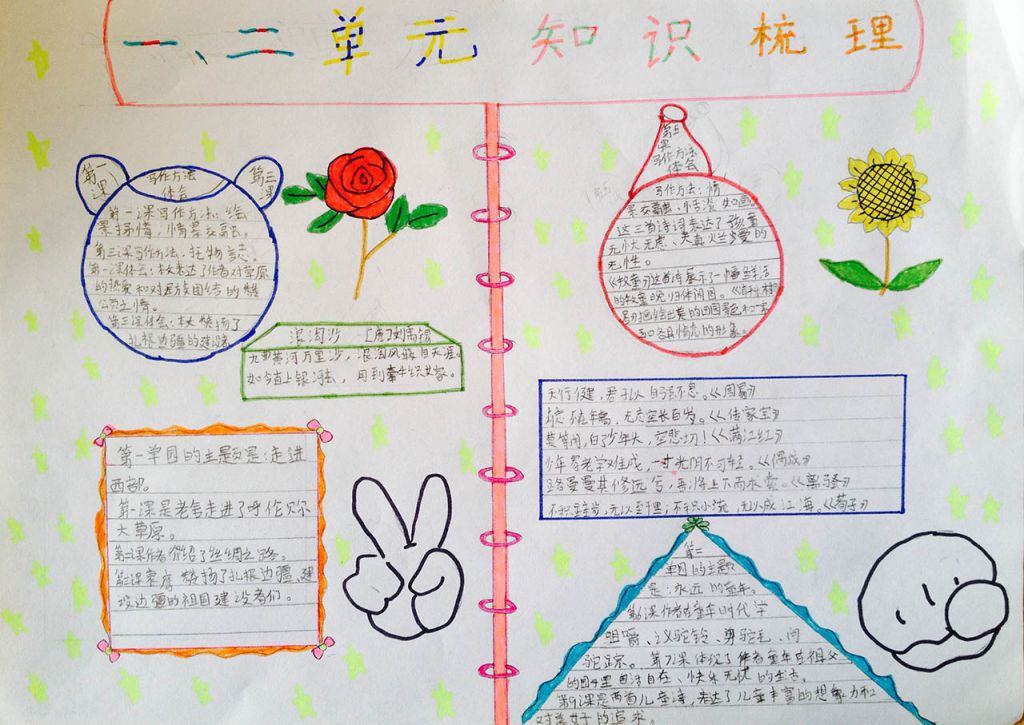 一、二单元 知识梳理
第一课
写作方法
体会
第三课
第一课写作方法:绘
景抒情,情景交融。
第三课写作方法:托物言志。
第一课体会:本文表达了作者对草原
的热爱和对民族团结的
之情。
第三课体会:本文赞扬了
扎根边疆的建设者
浪淘沙 [唐]刘禹锡
九曲黄河万里沙,浪淘风簸自天涯。
如今直上银河去,同到牵牛织女家。
第一单园的主题是:走进
西部。
第一课是老舍走进了呼伦贝尔
大草原。
第二课作者介绍了丝绸之路。
第三课 赞扬了扎根边疆、建
设边疆的祖国建设者们。
第五
课
写作方法
体会
写作方法:情
景交融、
这三首诗词表达了孩童
无忧无虑、天真烂漫的
无性。
《牧童》这首诗展示了一幅
的牧童晚归休闲图。
天行健,君子以自强不息。《周易》
无志空长百岁。《传家宝》
莫等闲,白了少年头,空悲切!《满江红》
少年易老学难成,一寸光阴不可轻。《偶成》
路曼曼其修远兮,吾将上下而求索。《离骚》
不积跬步,无以至千里;不积小流,无以成江海。《荀子》
第二
单园的主题
是:永远的童年。
第6课作者在童年时代学
咀嚼、驼铃、剪驼毛、问
驼踪。第7课体现了作者童年与祖父
的园中里自由自在、快乐无忧的生活。
第9课是两首儿童诗,表达了儿童丰富的想象力和
对美好的追求。